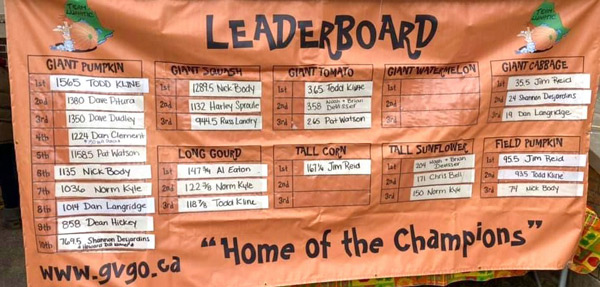 LEADERBOARD
GIANT PUMPKIN
1st 1565 TODD KLINE
2nd 1380 Dave Pitura
3rd 1350 Dave Dudley
4th 1224 Dan Clement
5th 1158.5 Pat Watson
6th 1135 Nick Body
7th 1036 Norm Kyle
8th 1014 Dan Langridge
9th 858 Dean Hickey
10th 769.5 Shannon Desjardins
GIANT SQUASH
1st 1289.5 Nick Body
2nd 1132 Harley Sproule
3rd 944.5 Russ Landry
LONG GOURD
1st 147 3/4 Al Eaton
2nd Norm Kyle
3rd Todd Kline
GIANT TOMATO
1st 3.65 Todd Kline
2nd 3.58 Noah + Brian
3rd 2.65 Pat Watson
TALL CORN
1st 167 1/4 Jim Reid
2nd
3rd
GIANT WATERMELON
1st
2nd
3rd
TALL SUNFLOWER
1st 204 Noah + Brian
2nd 171 Chris Bell
3rd 150 Norm Kyle
GIANT CABBAGE
1st 35.5 Jim Reid
2nd 24 Shannon Desjardins
3rd 19 Dan Langridge
FIELD PUMPKIN
1st 95.5 Jim Reid
2nd 93.5 Todd Kline
3rd 74 Nick Body
www.gvgo.ca
"Home of the Champions"